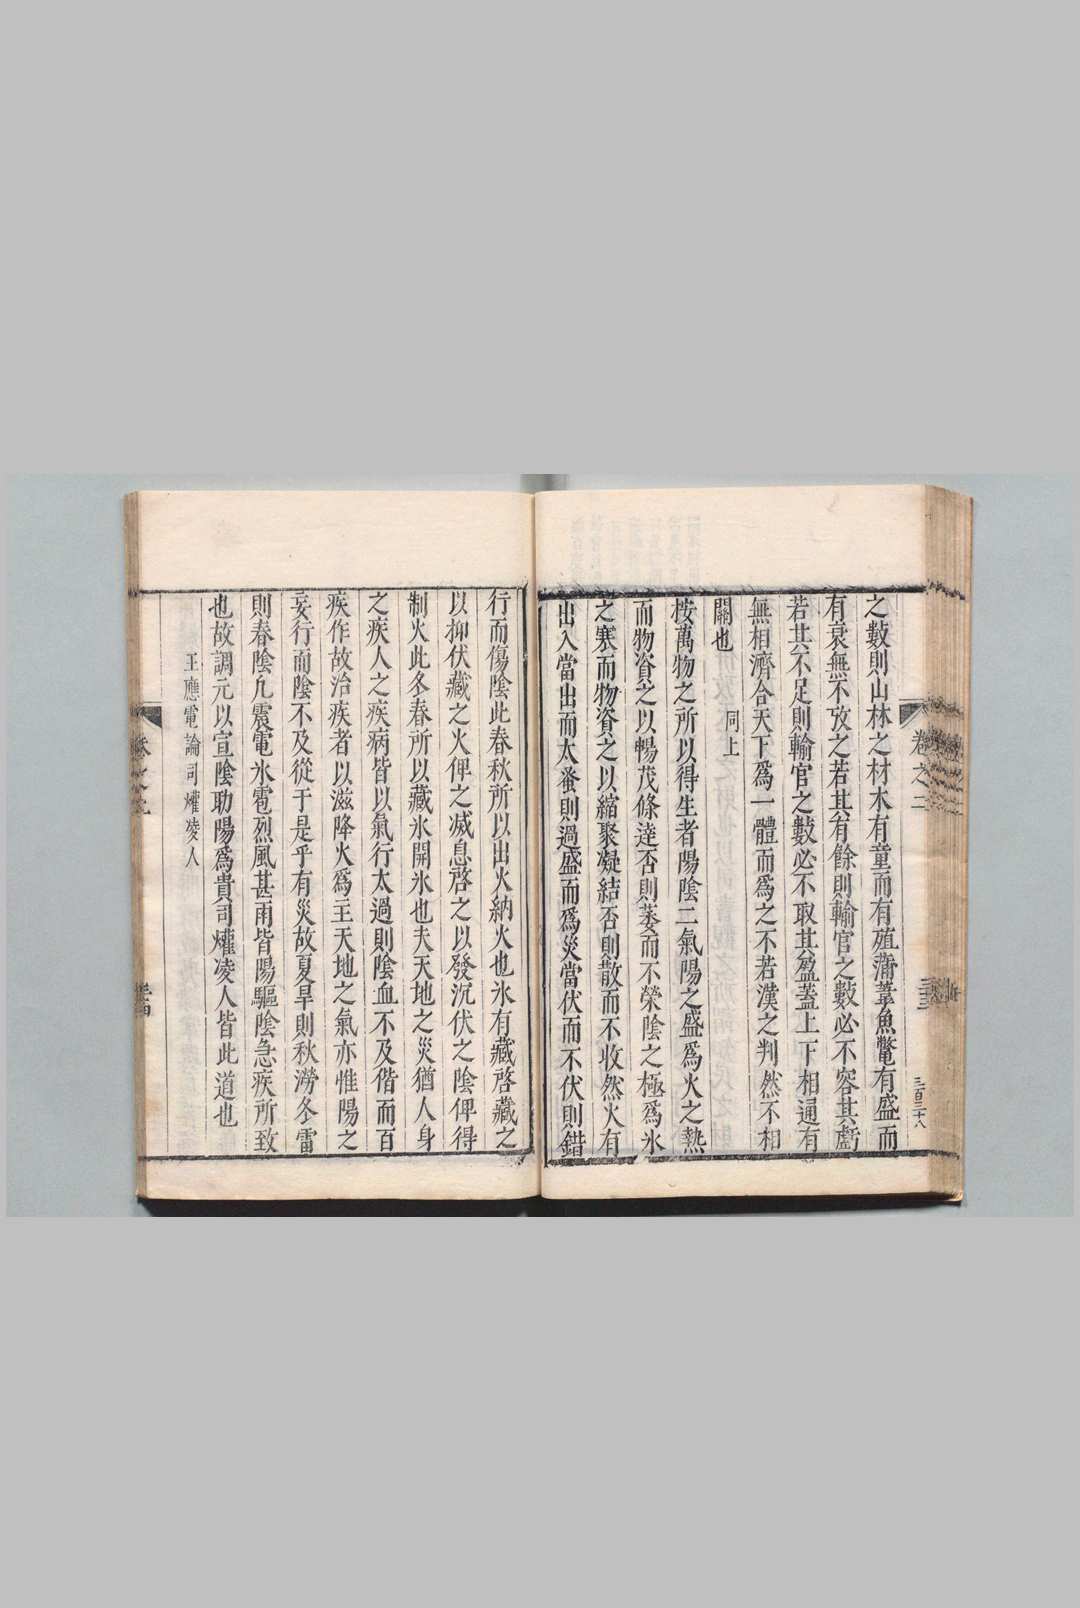 之數則山林之材木有童而有殖蒲葦魚鼈有盛而
有衰無不攷之若其有餘則輸官之數必不容其虧
若其不足則輸官之數必不取其盈蓋上下相通有
無相濟合天下爲一體而爲之不若漢之判然不相
關也 同上
按萬物之所以得生者陽陰二氣陽之盛爲火之熱
而物資之以暢茂條達否則萎而不榮陰之極爲氷
之寒而物資之以縮聚凝結否則散而不收然火有
出入當出而太蚤則過盛而爲災當伏而不伏則錯
行而傷陰此春秋所以出火納火也氷有藏啓藏之
以抑伏藏之火俾之滅息啓之以發沉伏之陰俾得
制火此冬春所以藏氷開氷也夫天地之災猶人身
之疾人之疾病皆以氣行太過則陰血不及偕而百
疾作故治疾者以滋降火爲王天地之氣亦惟陽之
妄行而陰不及從于是乎有災故夏旱則秋澇冬雷
則春陰凢震電氷雹烈風甚雨皆陽驅陰急疾所致
也故調元以宣陰助陽爲貴司爟凌人皆此道也
王應電論司爟凌人
卷之二
三百三十八